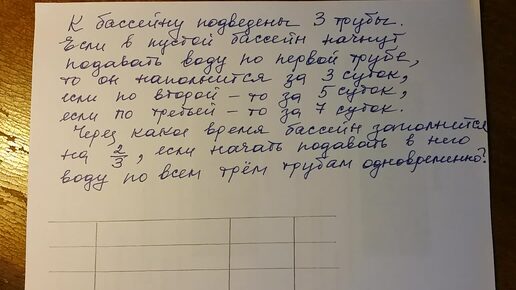 К бассейну подведены 3 трубы.
Если в пустой бассейн начнут
подавать воду по первой трубе,
то он наполнится за 3 суток,
если по второй – то за 5 суток,
если по третьей – то за 7 суток.
Через какое время бассейн заполнится
на 2/3, если начать подавать в него
воду по всем трём трубам одновременно?